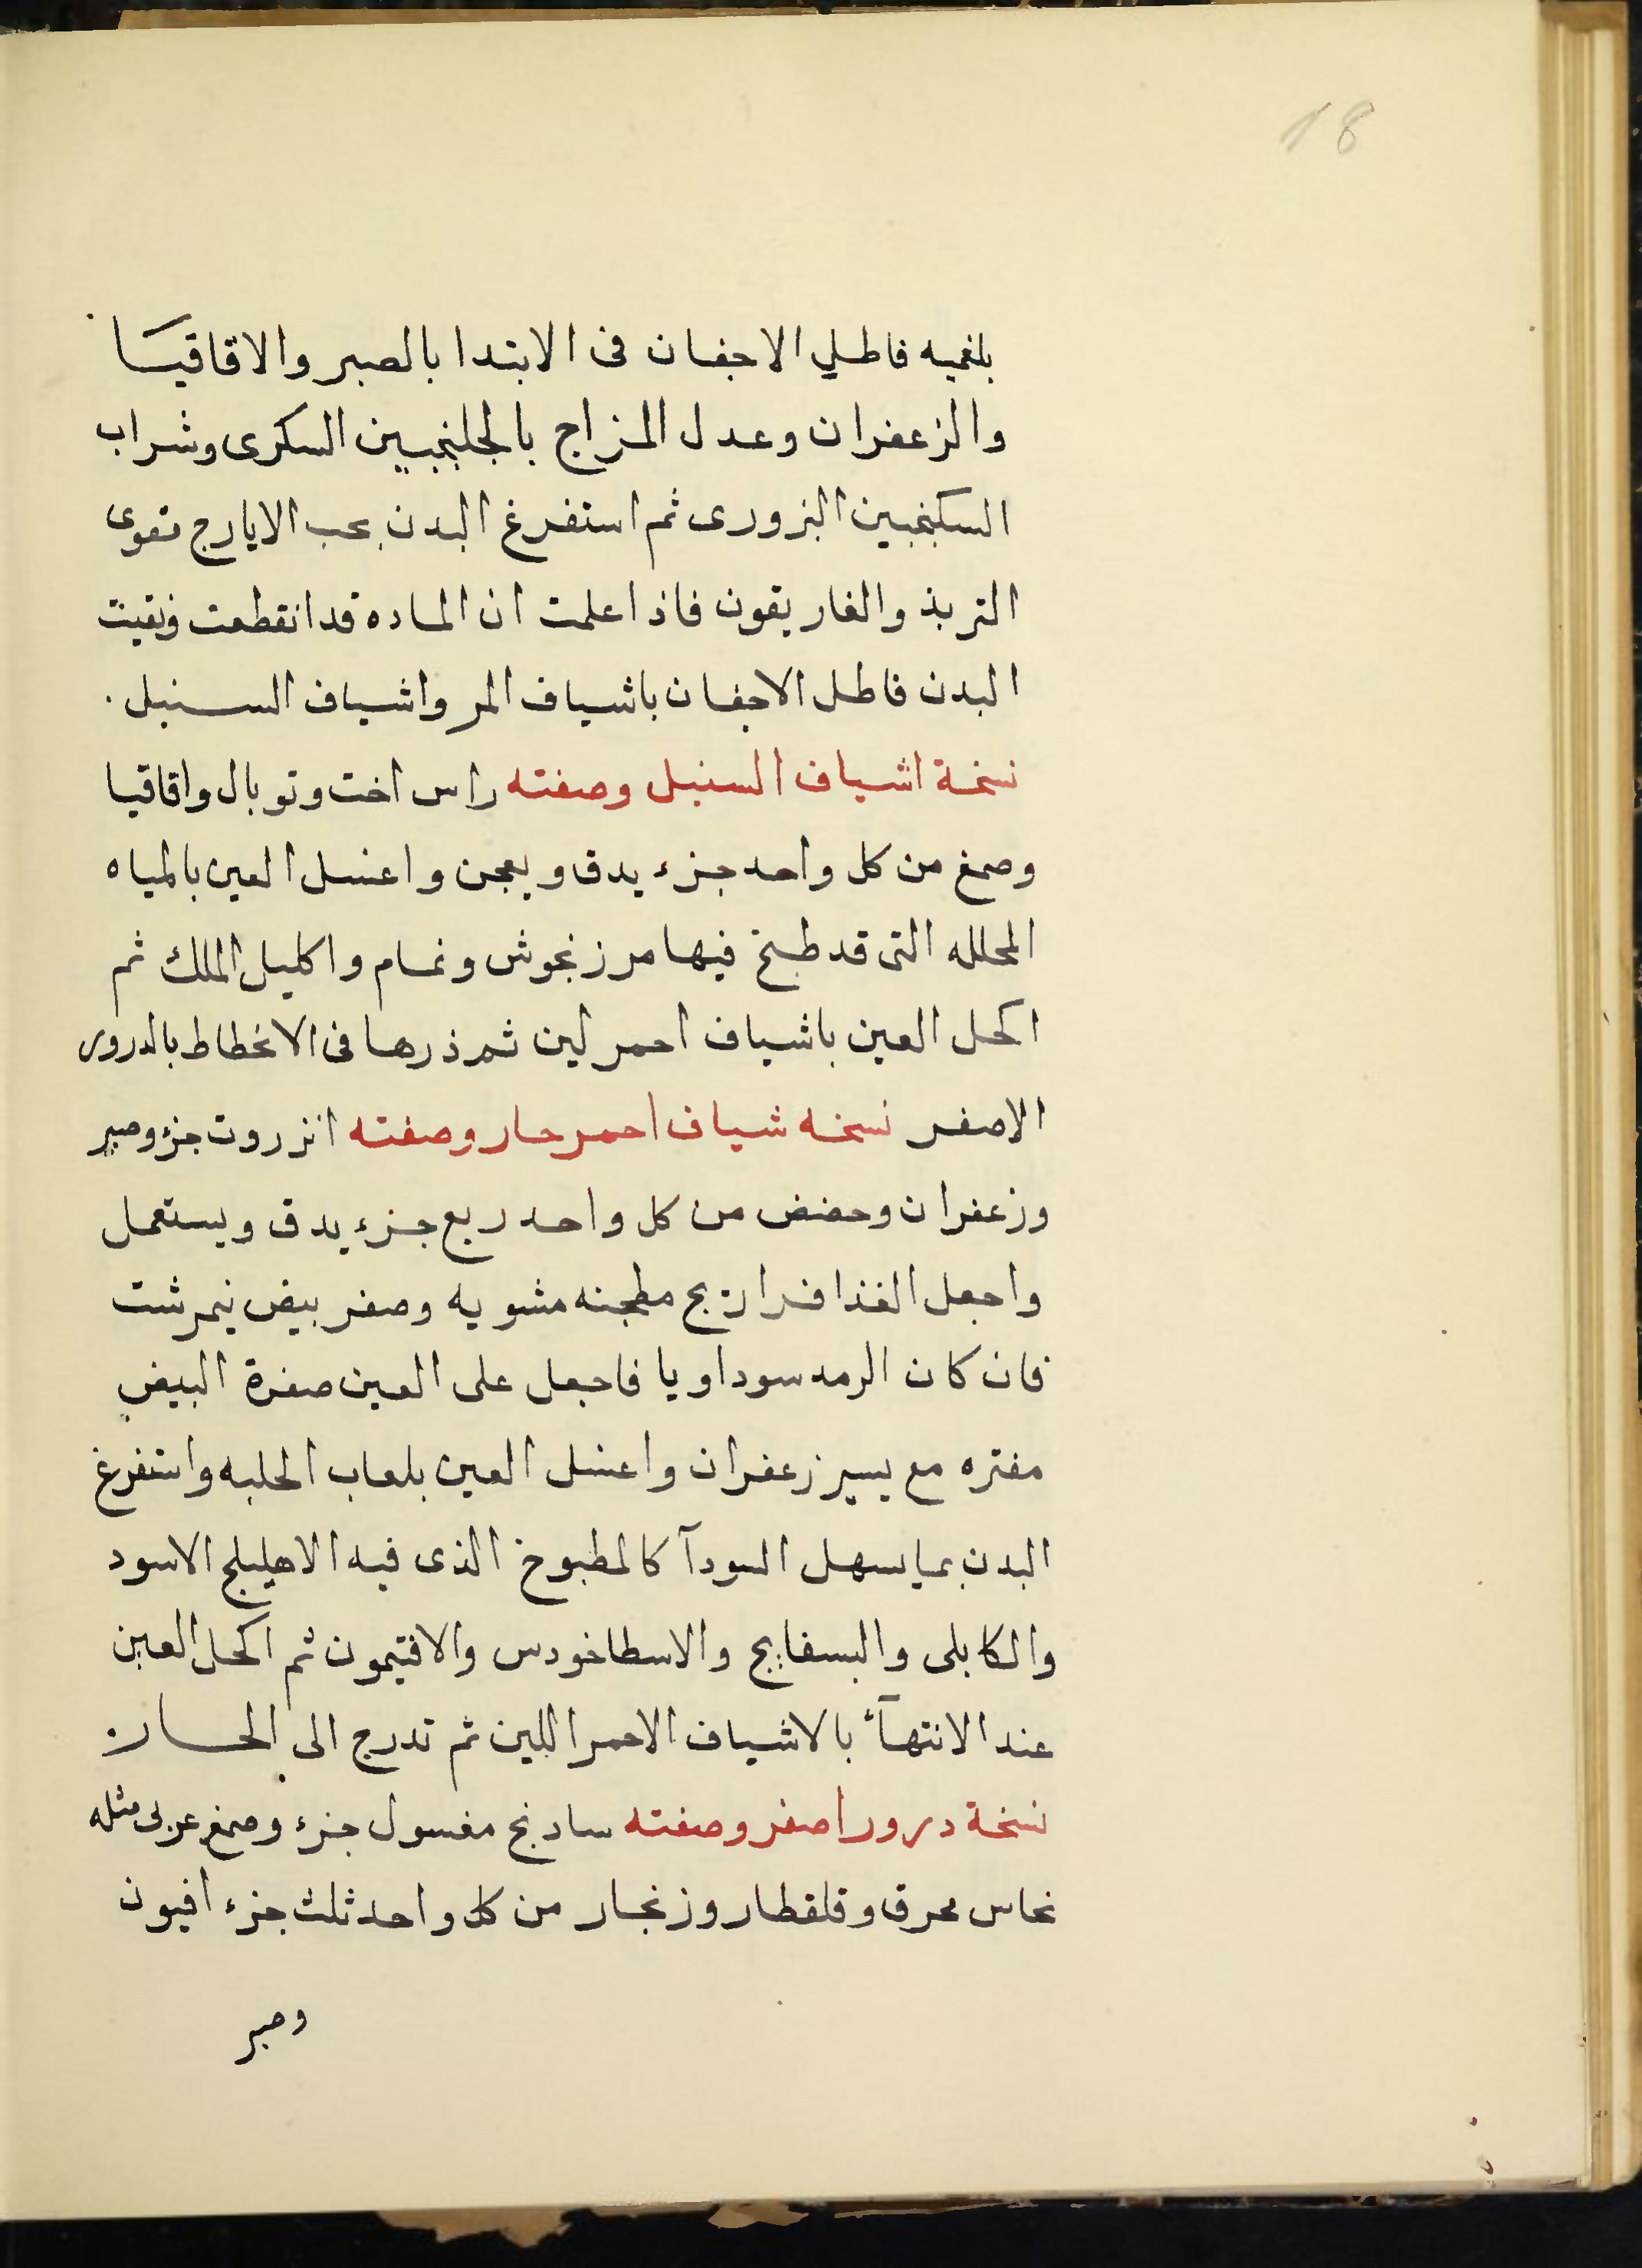 18
بلغميه فاطلي الاجفان فى الابتدا بالصبر والاقاقيا
والزعفران وعدل المزاج بالجلنجبين السكرى وشراب
السكنجبين البزورى ثم استفرغ البدن بحب الايارج تقوى
التربذ والغاريقون فاذا علمت ان الماده قد انقطعت ونقيت
البدن فاطل الاجفان باشياف المر واشياف السنبل .
نسخة اشياف السنبل وصفته راس اخت وتوبال واقاقيا
وصمغ من كل واحد جزء يدق ويعجن واغسل العين بالمياه
المحلله التى قد طبخ فيها مرزنجوش ونمام واكليل الملك ثم
اكحل العين باشياف احمر لين ثم ذرها فى الانحطاط بالدرور
الاصفر نسخه شياف احمر حار وصفته انزروت جزء وصبر
وزعفران وحضض من كل واحد ربع جزء يدق ويستعمل
واجعل الغذا فراريج مطجنه مشويه وصفر بيض نيمرشت
فان كان الرمد سوداويا فاجعل على العين صفرة البيض
مفتره مع يسير زعفران واغسل العين بلعاب الحلبه واستفرغ
البدن بما يسهل السودآ كالمطبوخ الذى فيه الاهليلج الاسود
والكابلى والبسفايج والاسطاخودس والافتيمون ثم اكحل العين
عند الانتهآء بالاشياف الاحمر اللين ثم تدرج الى الحار.
نسخة درور اصفر وصفته سادنج مغسول جزء وصمغ عربى مثله
نحاس محرق وقلقطار وزنجار من كل واحد ثلث جزء افيون
وصبر